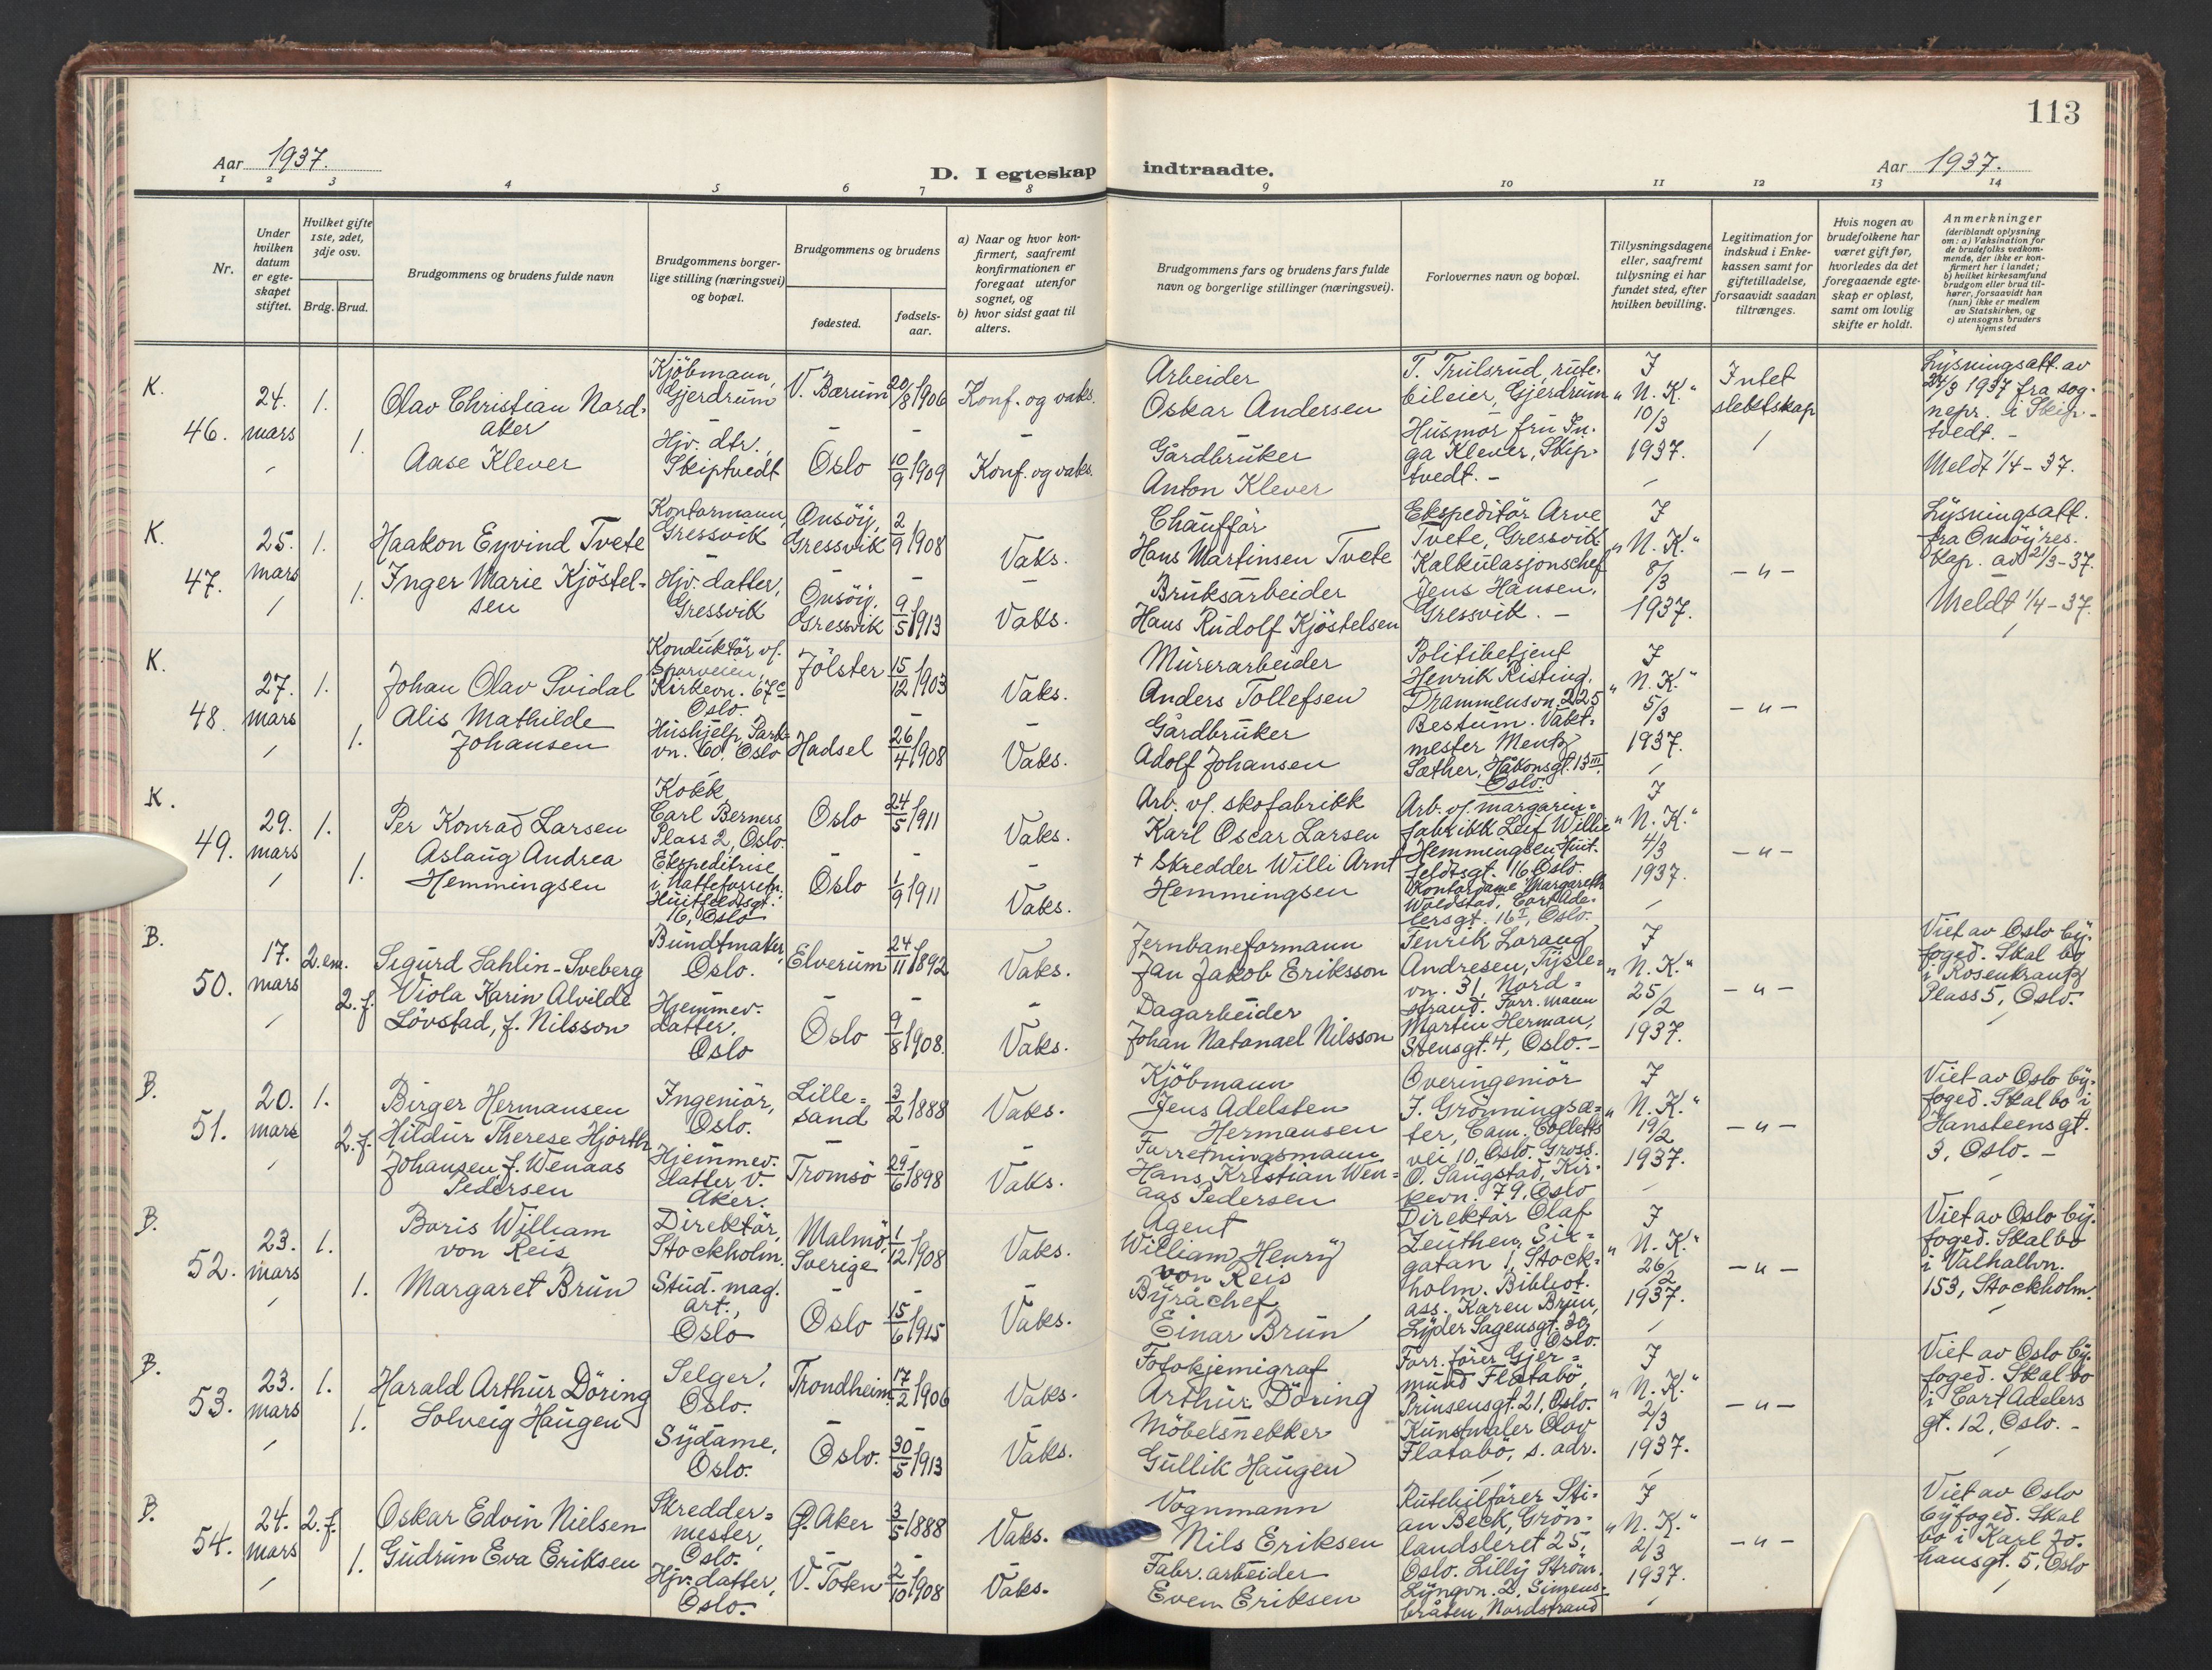 113
Aar 1937.
D. I egteskap indtraadte.
Aar 1937.
1 2 3 4 5 6 7 8 9 10 11 12 13 14
Nr.
Under hvilken datum er egte-skapet stiftet.
Hvilket gifte 1ste, 2det, 3dje osv.
Brdg. Brud.
Brudgommens og brudens fulde navn
Brudgommens borger-lige stilling (næringsvei) og bopæl.
Brudgommens og brudens
fødested.
fødsels-aar.
a) Naar og hvor kon-firmert, saafremt konfirmationen er foregaat utenfor sognet, og
b) hvor sidst gaat til alters.
Brudgommens fars og brudens fars fulde navn og borgerlige stillinger (næringsvei).
Forlovernes navn og bopæl.
Tillysningsdagene eller, saafremt tillysning ei har fundet sted, efter hvilken bevilling.
Legitimation for indskud i Enke-kassen samt for giftetilladelse, forsaavidt saadan tiltrænges.
Hvis nogen av brudefolkene har været gift før, hvorledes da det foregaaende egte-skap er opløst, samt om lovlig skifte er holdt.
Anmerkninger (deriblandt oplysning om: a) Vaksination for de brudefolks vedkom-mende, der ikke er kon-firmert her i landet; b) hvilket kirkesamfund brudgom eller brud til-hører, forsaavidt han (hun) ikke er medlem av Statskirken, og c) utensogns bruders hjemsted
K.
46.
24. mars
1.
Olav Christian Nord-aker
Kjöbmann, Gjerdrum
V. Bærum
20/8 1906
Konf. og vaks.
Arbeider
Oskar Andersen
T. Trulsrud, rute-bileier, Gjerdrum
Husmor fru In-ga Klever, Skip-tvedt. -
I "N. K." 10/3 1937.
Intet slektskap
Lysningsatt. av 24/3 1937 fra sog-nepr. i Skip-tvedt. -
Meldt 1/4 - 37.
1.
Aase Klever
Hjv. dtr., Skiptvedt
Oslo
10/9 1909
Konf. og vaks.
Gårdbruker
Anton Klever
K.
47.
25. mars
1.
Haakon Eyvind Tvete
Kontormann, Gressvik
Onsöy, Gressvik
2/9 1908
Vaks.
Chauffør
Hans Martinsen Tvete
Ekspeditör Arve Tvete, Gressvik.
Kalkulasjonschef Jens Hansen, Gressvik. -
I "N. K." 8/3 1937.
- " -
Lysningsatt. fra Onsöy res. kap. av 21/3 - 37.
Meldt 1/4 - 37.
1.
Inger Marie Kjöstel-sen
Hjv. datter, Gressvik
Onsöy, Gressvik
9/5 1913
Vaks.
Bruksarbeider
Hans Rudolf Kjöstelsen
K.
48.
27. mars
1.
Johan Olav Svidal
Konduktör v/ Sporveien, Kirkevn. 67c Oslo.
Jölster
15/12 1903
Vaks.
Murerarbeider
Anders Tollefsen
Politibetjent Henrik Risting, Drammensvn. 225 Bestum. Vakt-mester Mentz Sæther, Håkonsgt. 13 III, Oslo.
I "N. K." 5/3 1937.
- " -
1.
Alis Mathilde Johansen
Hushjelp, Park-vn. 60. Oslo
Hadsel
26/4 1908
Vaks.
Gårdbruker
Adolf Johansen
K.
49.
29. mars
1.
Per Konrad Larsen
Kokk, Carl Berners Plass 2, Oslo.
Oslo
24/5 1911
Vaks.
Arb. v/ skofabrikk
Karl Oscar Larsen
Arb. v/ margarin-fabrikk Leif Willie Hemmingsen, Huit-feldtsgt. 16 Oslo.
Kontordame Margareth Woldstad, Cort Ade-lersgt. 16 I, Oslo.
I "N. K." 4/3 1937.
- " -
1.
Aslaug Andrea Hemmingsen
Ekspeditrise i Kaffeforretn. Huitfeldtsgt. 16, Oslo
Oslo
1/9 1911
Vaks.
+ Skredder Willi Arnt Hemmingsen
B.
50.
17. mars
2. em.
Sigurd Sahlin-Sveberg
Buntmaker, Oslo.
Elverum
24/11 1892
Vaks.
Jernbaneformann
Jan Jakob Eriksson
Fenrik Lorang Andresen, Tysle-vn. 31, Nord-strand. Forr. mann Martin Herman, Stensgt. 4, Oslo. -
I "N. K." 25/2 1937.
- " -
Viet av Oslo by-foged. Skal bo i Rosenkrantz Plass 5, Oslo. -
2. f.
Viola Karin Alvilde Lövstad, f. Nilsson
Hjemmev. datter, Oslo
Oslo
9/8 1908.
Vaks.
Dagarbeider
Johan Natanael Nilsson
B.
51.
20. mars
1.
Birger Hermansen
Ingeniör, Oslo.
Lille-sand
3/2 1888
Vaks.
Kjöbmann
Jens Adelsten Hermansen
Overingeniör J. Grönningsæ-ter, Cam. Colletts vei 10, Oslo. Gross. O. Saugstad, Kir-kevn. 79. Oslo
I "N. K." 19/2 1937.
- " -
Viet av Oslo by-foged. Skal bo i Hansteensgt. 3, Oslo. -
2. f.
Hildur Therese Hjorth Johansen, f. Wenaas Pedersen
Hjemmev. datter V. Aker.
Tromsö
29/6 1898
Vaks.
Forretningsmann
Hans Kristian Wen-aas Pedersen
B.
52.
23. mars
1.
Boris William von Reis
Direktör, Stockholm.
Malmö, Sverige
1/12 1908
Vaks.
Agent
William Henry von Reis
Direktör Olaf Zeuthen, Sir-gatan 1, Stock-holm. Bibliot. ass. Karen Brun, Lyder Sagensgt. 30, Oslo.
I "N. K." 26/2 1937.
- " -
Viet av Oslo by-foged. Skal bo i Valhallvn. 153, Stockholm.
1.
Margaret Brun
Stud. mag. art., Oslo
Oslo
15/6 1915
Vaks.
Byråchef
Einar Brun
B.
53.
23. mars
1.
Harald Arthur Döring
Selger, Oslo.
Trondheim
17/2 1906
Vaks.
Fotokjemigraf
Arthur Döring
Forr. förer Gjer-mund Flatabö, Prinsensgt. 21, Oslo.
Kunstmaler Olav Flatabö, s. adr.
I "N. K." 2/3 1937.
- " -
Viet av Oslo by-foged. Skal bo i Cort Adelers gt. 12, Oslo. -
1.
Solveig Haugen
Sydame, Oslo.
Oslo.
30/5 1913
Vaks.
Möbelsnekker
Gullik Haugen
B.
54.
24. mars
2. f.
Oskar Edvin Nielsen
Skredder-mester, Oslo.
Ø. Aker
3/5 1888
Vaks.
Vognmann
Nils Eriksen
Rutebilförer Sti-an Beck, Grön-landsleret 25, Oslo. Lilly Ström, Lyngvn. 2, Simens-bråten, Nordstrand
I "N. K." 2/3 1937.
- " -
Viet av Oslo byfoged. Skal bo i Karl Jo-hansgt. 5, Oslo
1.
Gudrun Eva Eriksen
Hjv. datter, Oslo.
V. Toten
2/10 1908
Vaks.
Fabr. arbeider
Even Eriksen